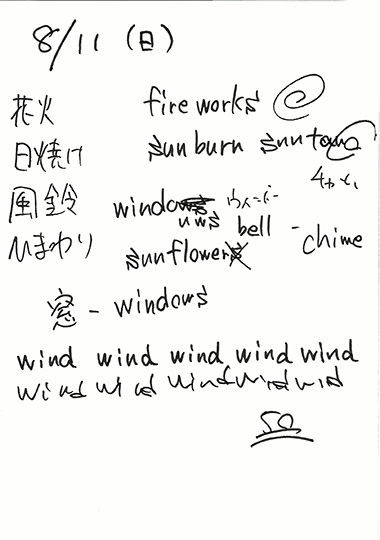 8/11 (日)
花火 fireworks
日焼け sunburn suntan
風鈴 window bell - chime
ひまわり sunflowers
窓 - windows
wind wind wind wind wind
wind wind wind wind wind
50